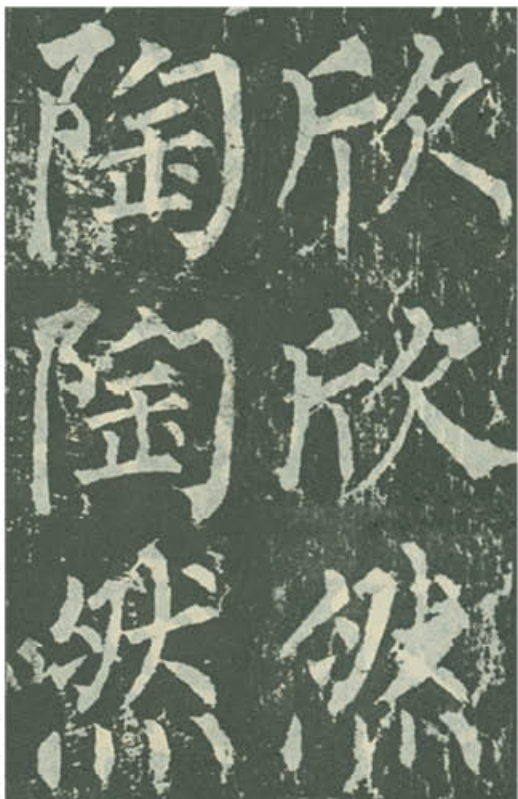 欣欣然
陶陶然